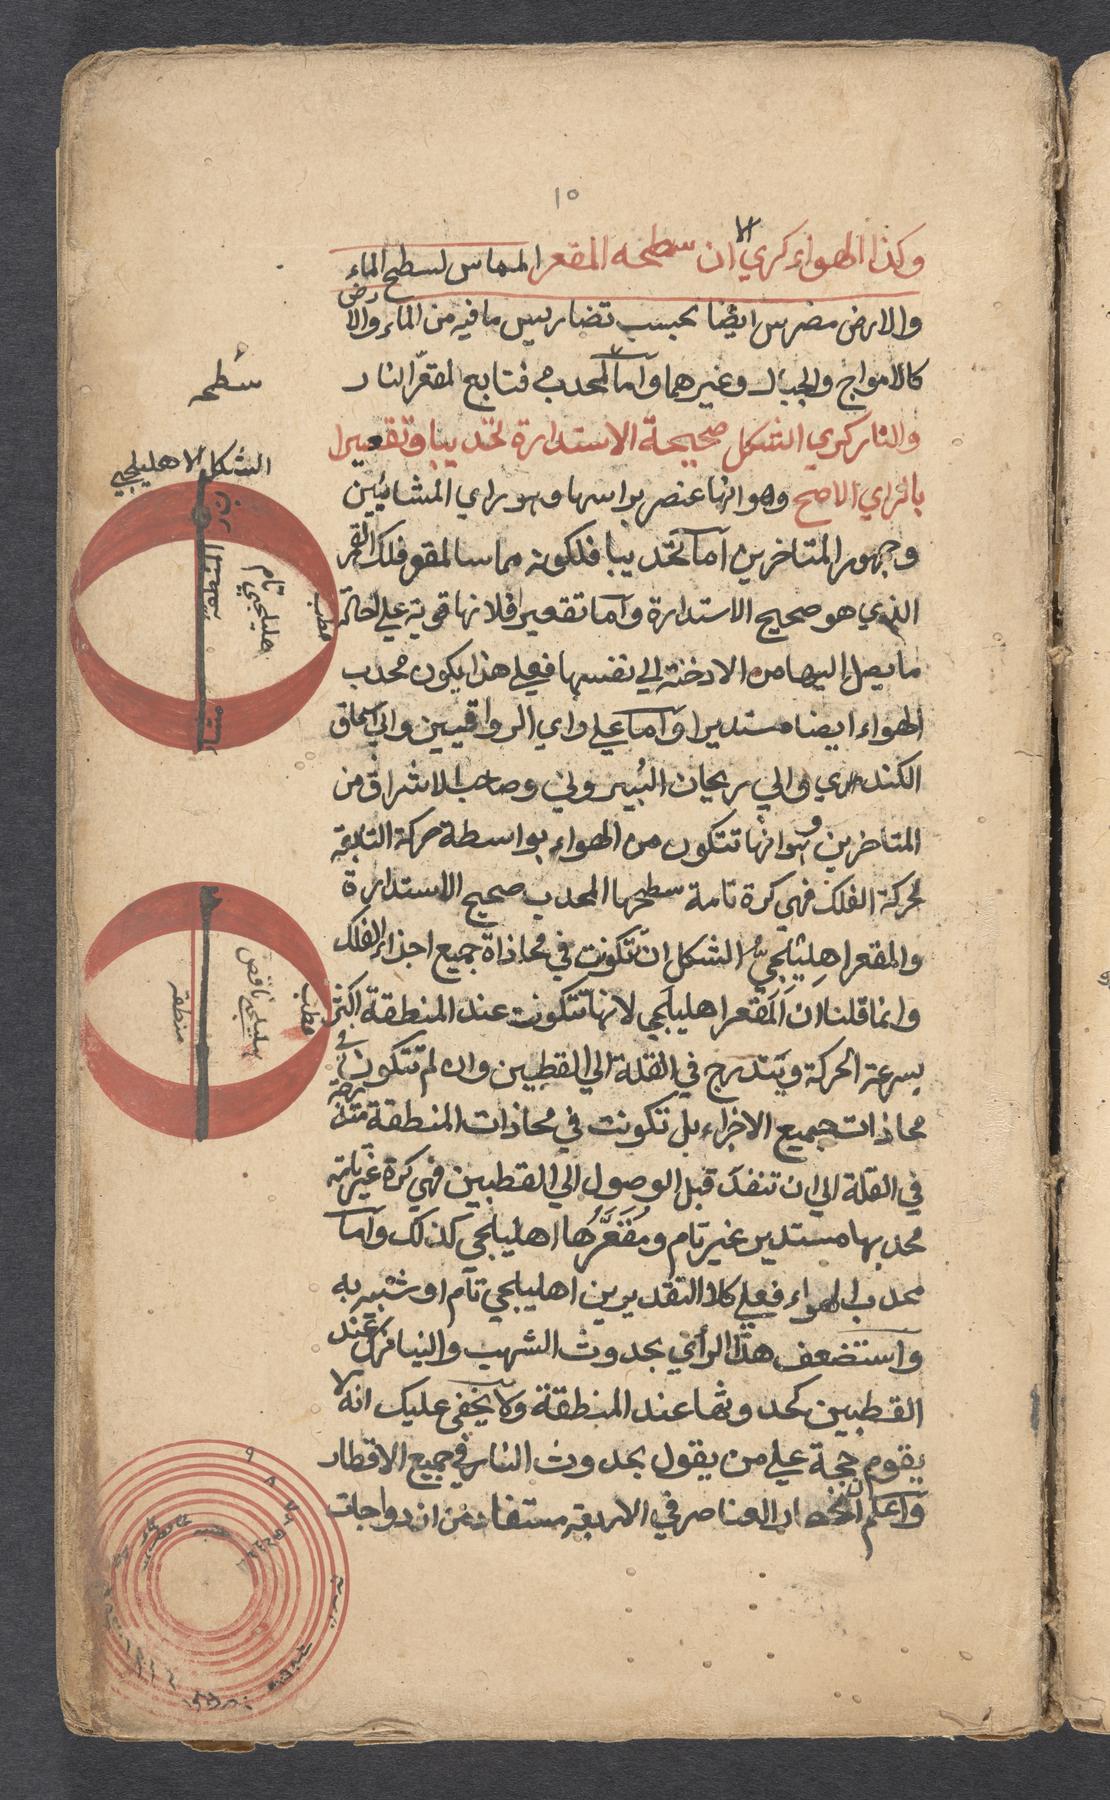 ١٥
وكذا الهواء كري الا ان سطحه المقعر المماس لسطح الماء
والارض مضرس ايضا بحسب تضاريس ما فيه من الماء والارض
كالامواج والجبال وغيرهما واما المحدب فتابع لمقعر النار
والنار كري الشكل صحيحة الاستدارة تحديبا وتقعيرا
بالراي الاصح وهو انها عنصر براسها وهو راي المشائيين
وجمهور المتاخرين اما تحديبا فلكونه مماسا لمقعر فلك القمر
الذي هو صحيح الاستدارة واما تقعيرا فلانها قوية على احالة
ما يصل اليها من الادخنة الي نفسها فعلي هذا يكون محدب
الهواء ايضا مستديرا واما علي راي الرواقيين وابي اسحاق
الكندي وابي ريحان البيروني وصاحب الاشراق من
المتاخرين وهو انها تتكون من الهواء بواسطة حركة التابعة
لحركة الفلك فهي كرة تامة سطحها المحدب صحيح الاستدارة
والمقعر اهليلجي الشكل ان تكونت في محاذاة جميع اجزاء الفلك
وانما قلنا ان المقعر اهليلجي لانها تتكون عند المنطقة اكثر
بسرعة الحركة ويتدرج في القلة الي القطبين وان لم تتكون في
محاذات جميع الاجزاء بل تكونت في محاذات المنطقة متدرجة
في القلة الي ان تنفد قبل الوصول الي القطبين فهي كرة غير تامة
محدبها مستدير غير تام ومقعرها اهليلجي كذلك واما
محدب الهواء فعلي كلا التقديرين اهليلجي تام او شبيه به
واستضعف هذا الرأي بحدوث الشهب والنيازك عند
القطبين كحدوثها عند المنطقة ولا يخفى عليك انه لا
يقوم حجة علي من يقول بحدوث النار في جميع الاقطار
واعلم ان العناصر في الاربعة مستفاد من ازدواجات
سطحه
الشكل الاهليلجي
هليلجي تام
قطب
هليلجي ناقص
قطب
منطقه